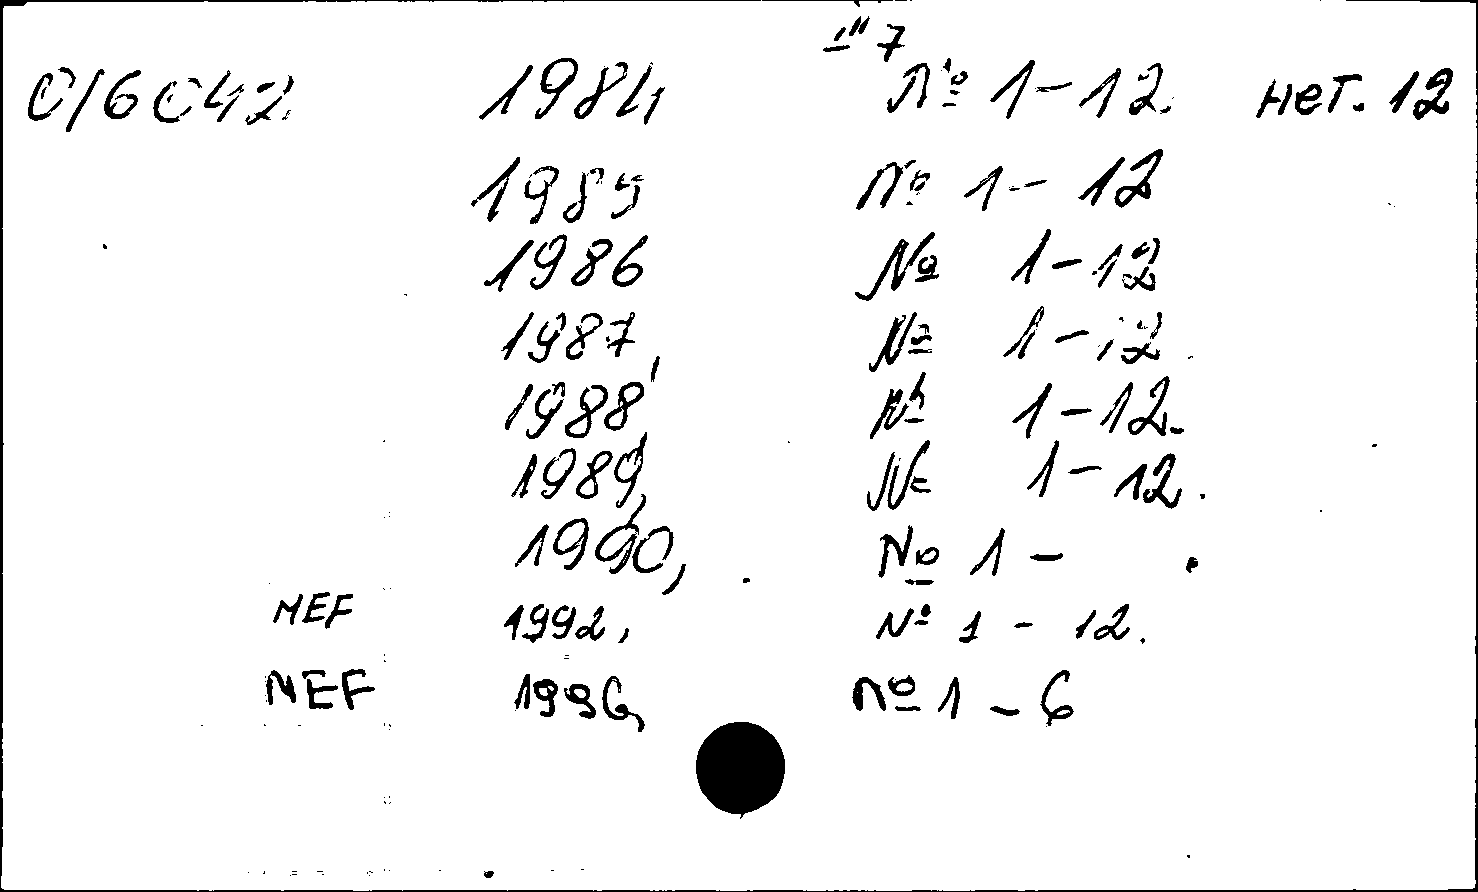 7
С/6С42. 1984, № 1-12. нет. 12
1985 № 1-12
1986 № 1-12
1987, № 1-12.
1988, № 1-12.
1989, № 1-12.
1990, № 1-
NEF 1992, № 1-12.
NEF 1996, № 1-6